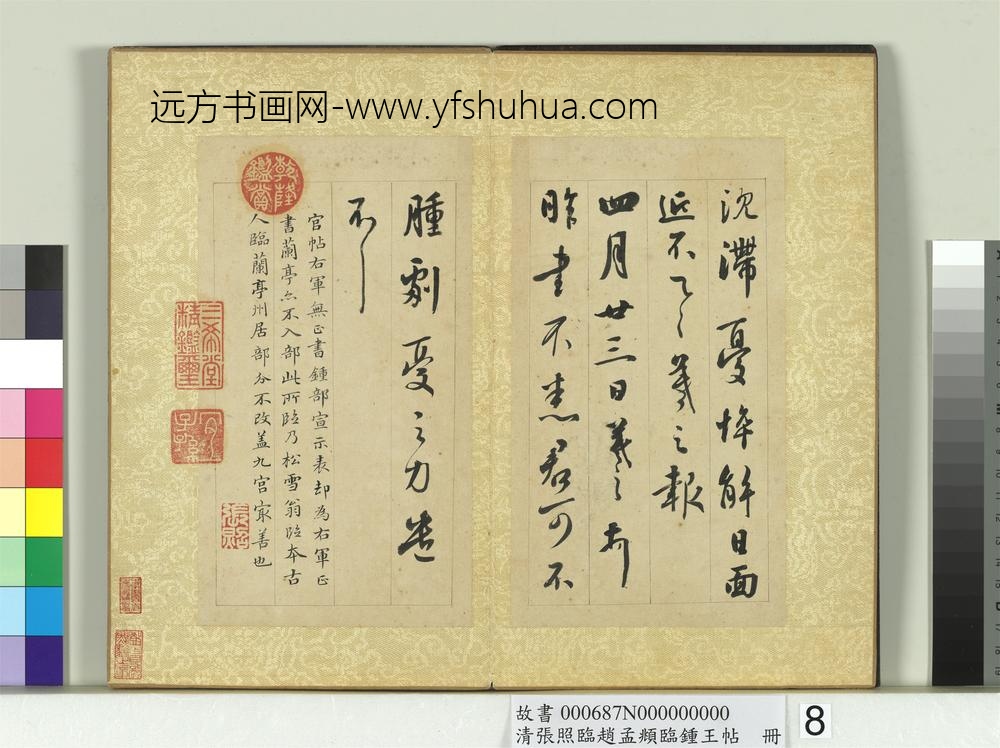 远方书画网-www.yfshuhua.com
沈滯憂悴解日面
近不具羲之報
四月廿三日羲之頓
昨書不悉君可不
腫劇憂之力遣
不
官帖右軍無正書鍾部宣示表却為右軍正
書蘭亭亦不入部此所臨乃松雪翁臨本古
人臨蘭亭州居部分不改蓋九宮寂善也
乾隆鑑賞
三希堂精鑑璽
宜子孫
張照
故書 000687N000000000
清張照臨趙孟頫臨鍾王帖 冊
8